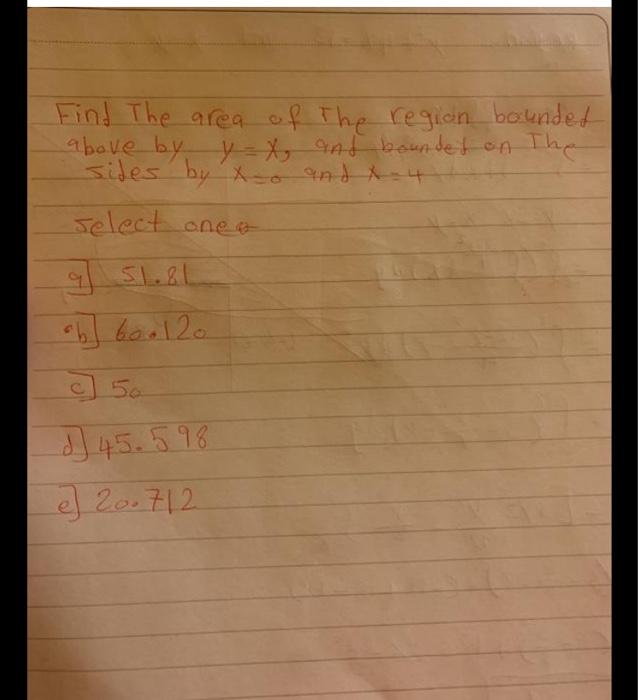 Find The area of The region bounded
above by y = x, and bounded on The
sides by x=0 and x=4
select one:
a] 51.81
b] 60.120
c] 50
d] 45.598
e] 20.712